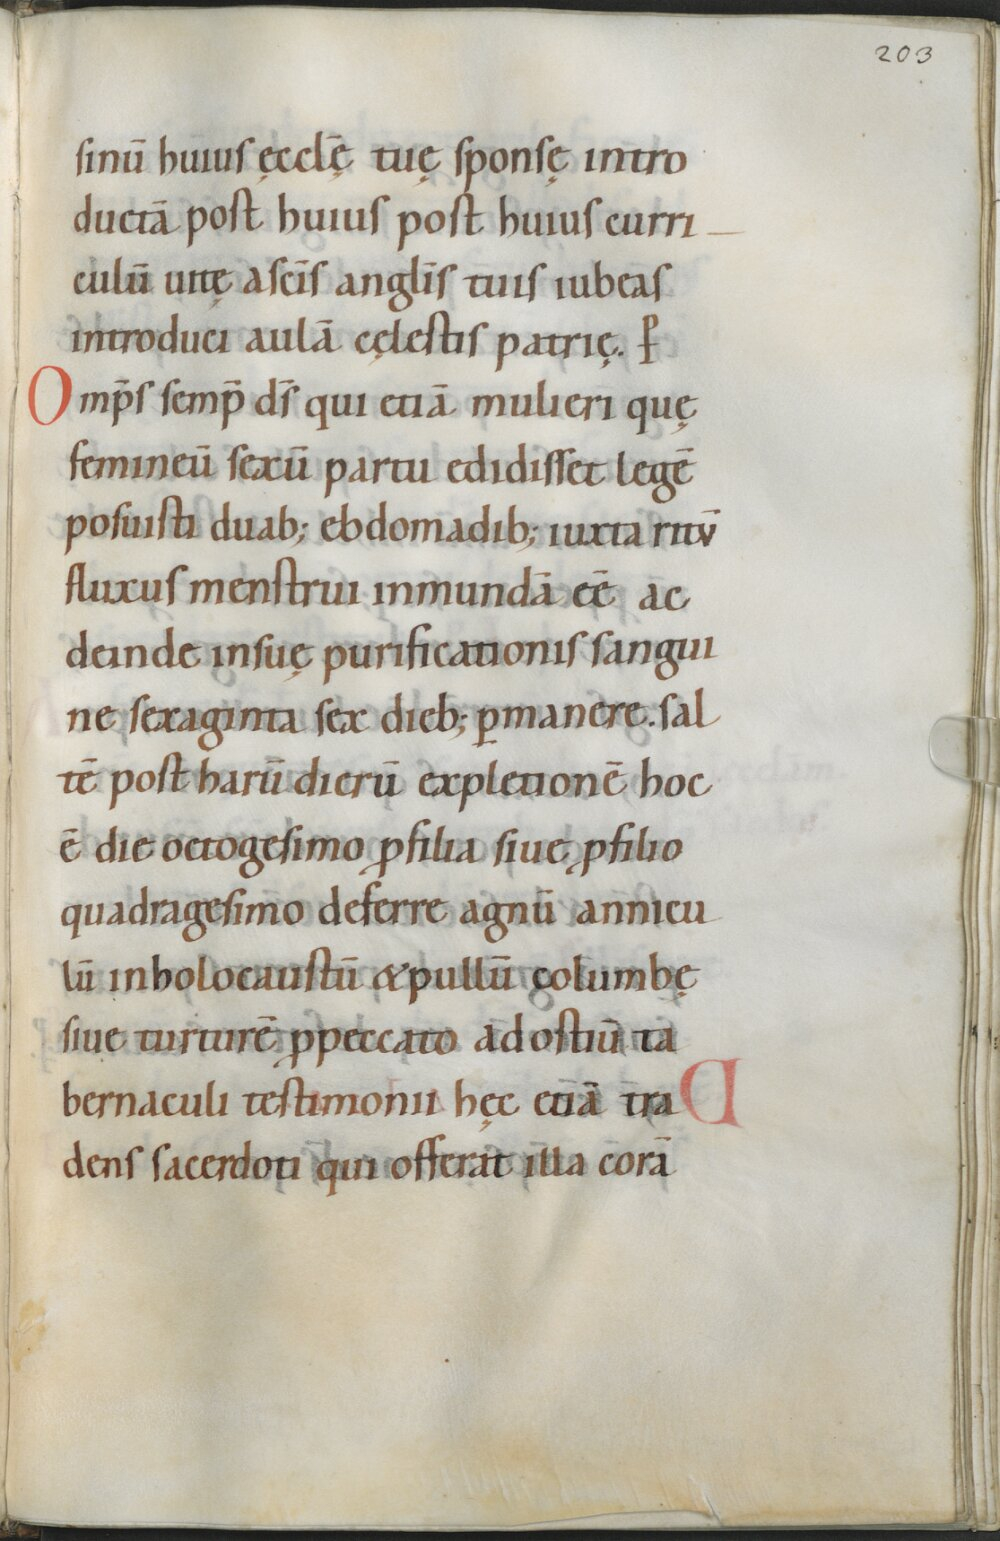 203
sinū huius ęcclę̄ tuę sponsę intro
ductā post huius post huius curri
culū uitę a sc̄is anglīs tuis iubeas
introduci aulā cęlestis patrię. P̱
Omp̄s semp̄ ds̄ qui etiā mulieri quę
femineū sexū partu edidisset legē
posuisti duab; ebdomadib; iuxta ritū
fluxus menstrui inmundā eē ac
deinde insuę purificationis sangui
ne sexaginta sex dieb; ꝑmanere. sal
tē post harū dierū expletionē hoc
ē die octogesimo ꝓ filia siue ꝓ filio
quadragesimo deferre agnū annicu
lū inholocaustū & pullū columbę
siue turturē ꝓpeccato ad ostiū ta
bernaculi testimonii hęc etiā tra
dens sacerdoti qui offerat illa corā